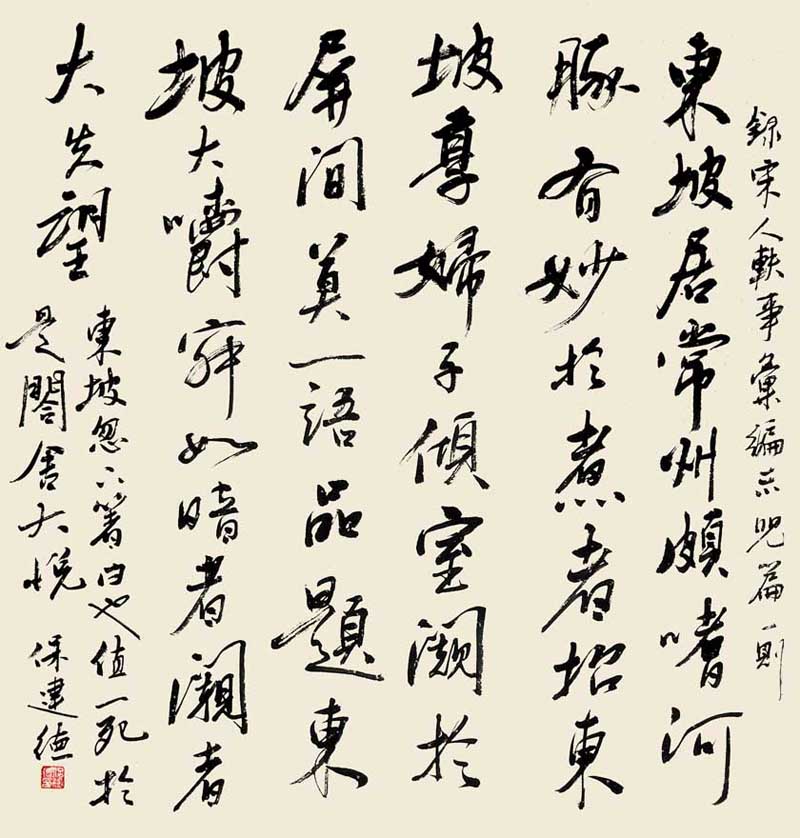 錄宋人軼事彙編示兒篇一則
東坡居常州頗嗜河
豚有妙於煮者招東
坡享婦子傾室闚於
屏間冀一語品題東
坡大嚼寂如暗者闚者
大失望
東坡忽下箸曰也值一死於
是闔舍大悅 保建德